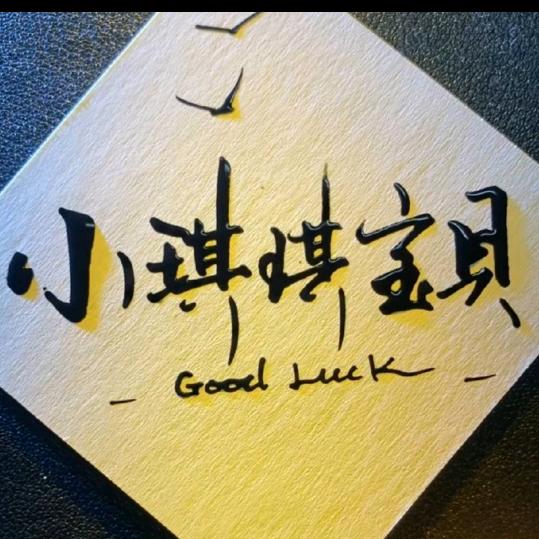 小琪琪宝貝
- Good Luck -